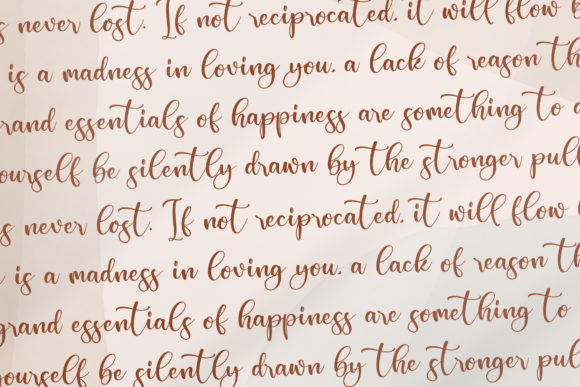 s never lost. If not reciprocated, it will flow
is a madness in loving you, a lack of reason th
grand essentials of happiness are something to
yourself be silently drawn by the stronger pull
s never lost. If not reciprocated, it will flow
is a madness in loving you, a lack of reason th
grand essentials of happiness are something to
yourself be silently drawn by the stronger pull